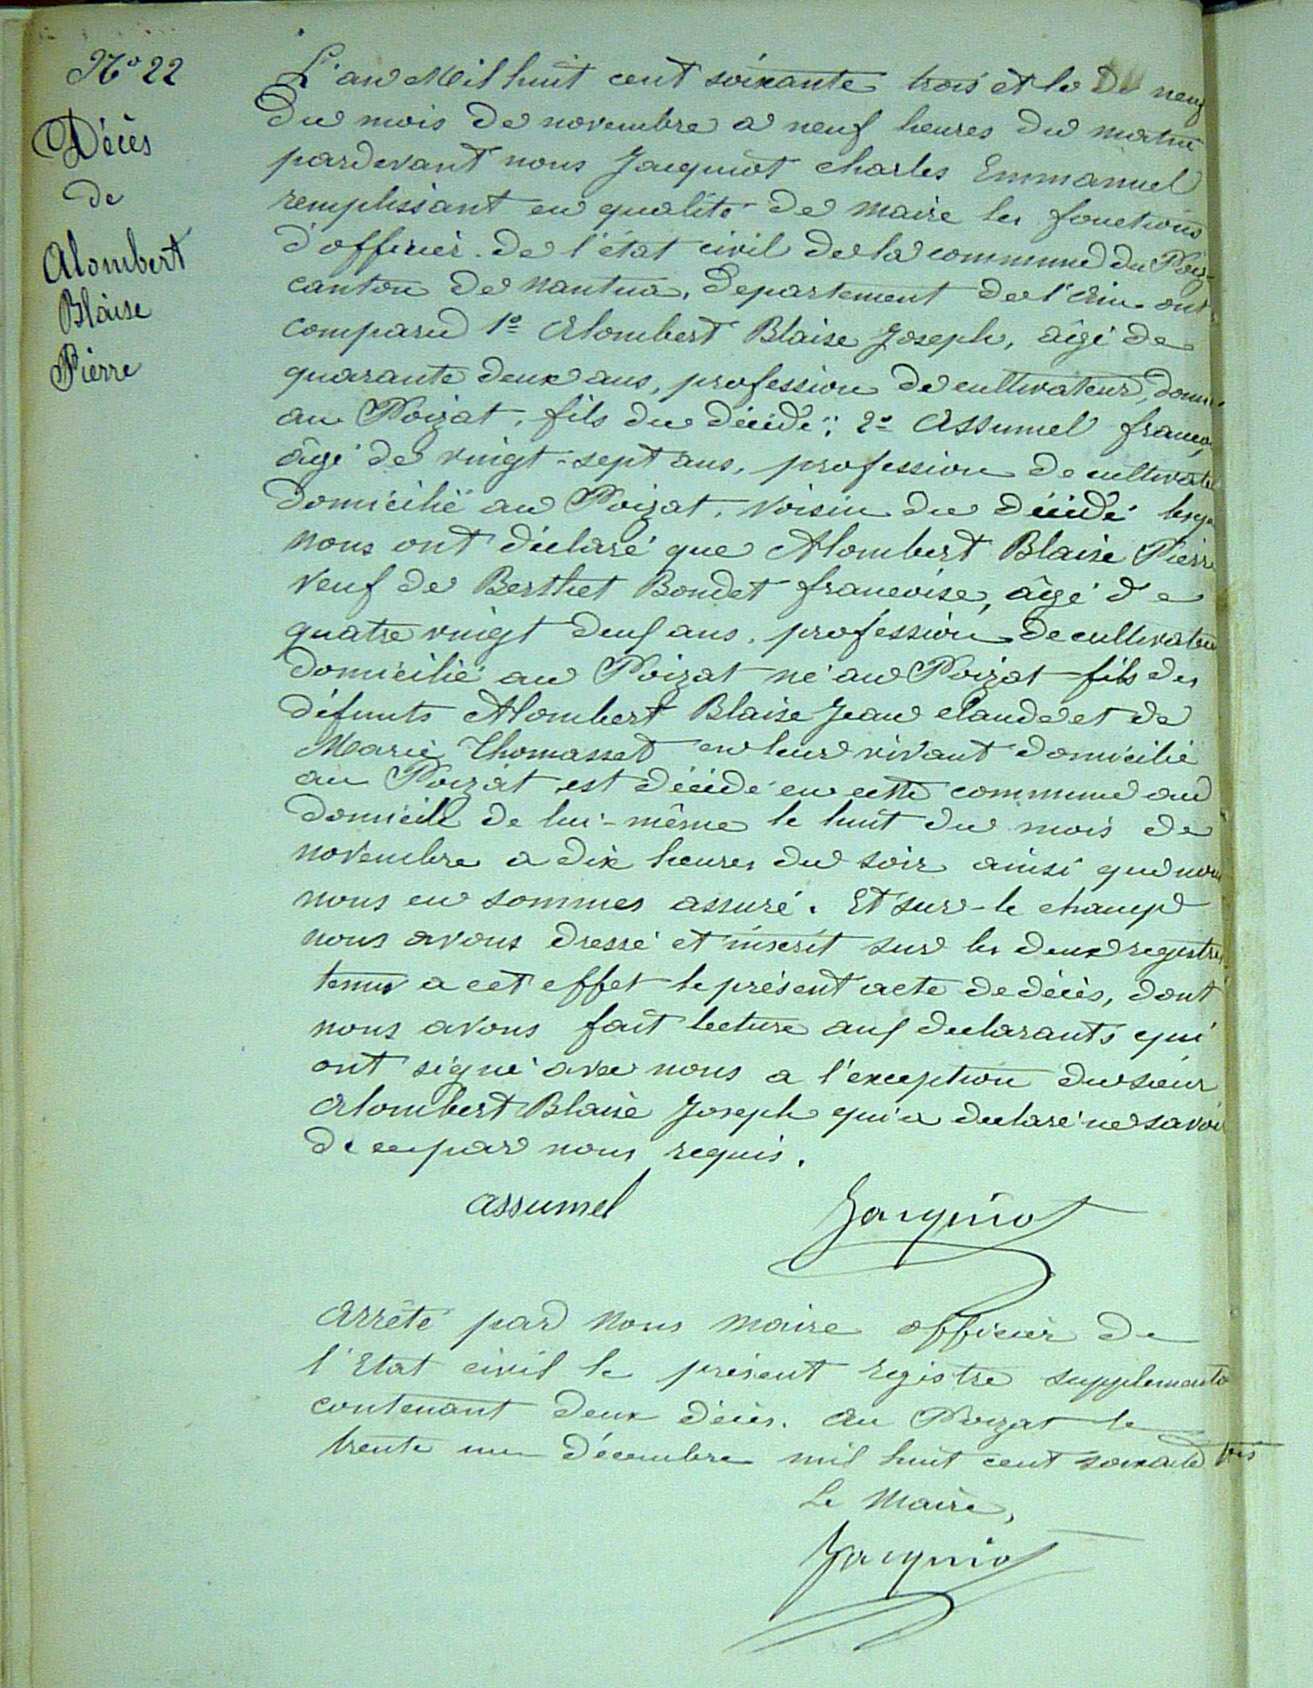 N° 22
Décès
de
Alombert
Blaise
Pierre
L'an Mil huit cent soixante trois et le neuf
du mois de novembre a neuf heures du matin
pardevant nous Jacquiot Charles Emmanuel
remplissant en qualité de maire les fonctions
d'officier de l'état civil de la commune du Poiz
canton de Nantua, Departement de l'Ain ont
comparu 1° Alombert Blaise Joseph, âgé de
quarante deux ans, profession de cultivateur, domi
au Poizat, fils du décédé; 2° Assumel franço
âgé de vingt-sept ans, profession de cultivate
domicilié au Poizat, voisin du décédé lesq
nous ont déclaré que Alombert Blaise Pierre
veuf de Berthet Bondet francoise, âgé de
quatre vingt deux ans, profession de cultivateur
domicilié au Poizat né au Poizat fils des
défunts Alombert Blaise Jean claude et de
Marie Thomasset en leur vivant domicilié
au Poizat est décédé en cette commune au
domicile de lui-même le huit du mois de
novembre a dix heures du soir ainsi que nous
nous en sommes assuré. Et sur-le champ
nous avons dressé et inscrit sur les deux registres
tenus a cet effet le présent acte de décès, dont
nous avons fait lecture aux declarants qui
ont signé avec nous a l'exception du sieur
Alombert Blaise Joseph qui a declaré ne savoir
de ce par nous requis.
assumel Jacquiot
Arrêté par nous maire officier de
l'Etat civil le présent registre supplementa
contenant deux décès. Au Poizat le
trente un décembre mil huit cent soixante trois
Le Maire,
Jacquiot